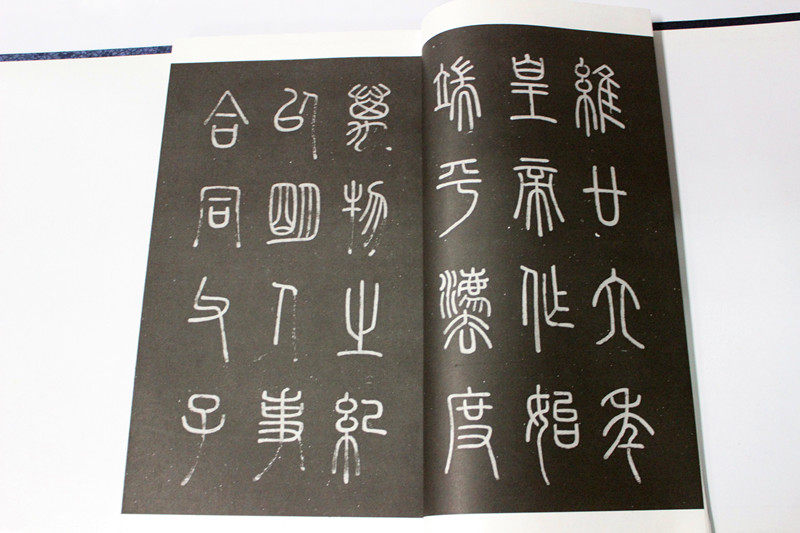 維廿六年
皇帝作始
端平灋度
萬物之紀
以明人事
合同父子